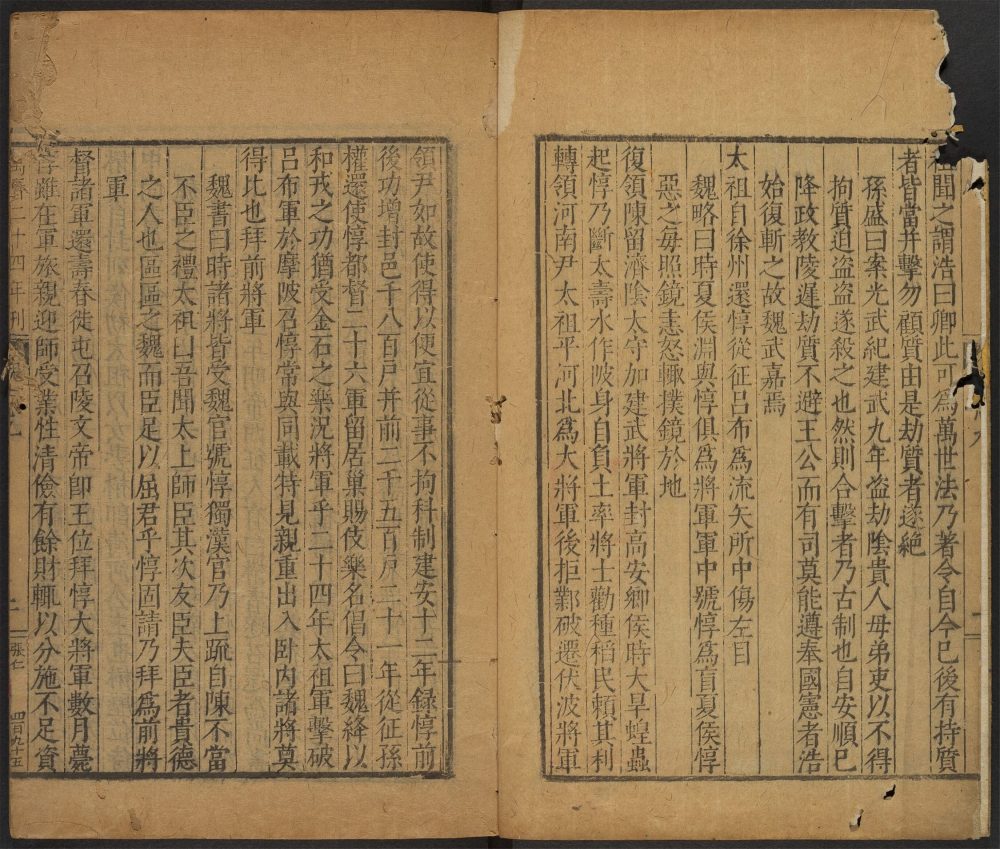 祖聞之謂浩曰卿此可爲萬世法乃著令自今已後有持質
者皆當并擊勿顧質由是劫質者遂絶
孫盛曰案光武紀建武九年盗劫陰貴人母弟吏以不得
拘質迫盗盗遂殺之也然則合擊者乃古制也自安順已
降政教陵遲劫質不避王公而有司莫能遵奉國憲者浩
始復斬之故魏武嘉焉
太祖自徐州還惇從征吕布爲流矢所中傷左目
魏略曰時夏侯淵與惇俱爲將軍軍中號惇爲盲夏侯惇
惡之每照鏡恚怒輙撲鏡於地
復領陳留濟陰太守加建武將軍封高安鄉侯時大旱蝗蟲
起惇乃斷太壽水作陂身自負土率將士勸種稻民賴其利
轉領河南尹太祖平河北爲大將軍後拒鄴破遷伏波將軍
領尹如故使得以便宜從事不拘科制建安十二年録惇前
後功增封邑千八百戸并前二千五百戸二十一年從征孫
權還使惇都督二十六軍留居巢賜伎樂名倡令曰魏絳以
和戎之功猶受金石之樂況將軍乎二十四年太祖軍擊破
吕布軍於摩陂召惇常與同載特見親重出入卧内諸將莫
得比也拜前將軍
魏書曰時諸將皆受魏官號惇獨漢官乃上疏自陳不當
不臣之禮太祖曰吾聞太上師臣其次友臣夫臣者貴德
之人也區區之魏而臣足以屈君乎惇固請乃拜爲前將
軍
督諸軍還壽春徙屯召陵文帝卽王位拜惇大將軍數月薨
惇雖在軍旅親迎師受業性清儉有餘財輒以分施不足資
二十四年刊
張仁
四百九十五